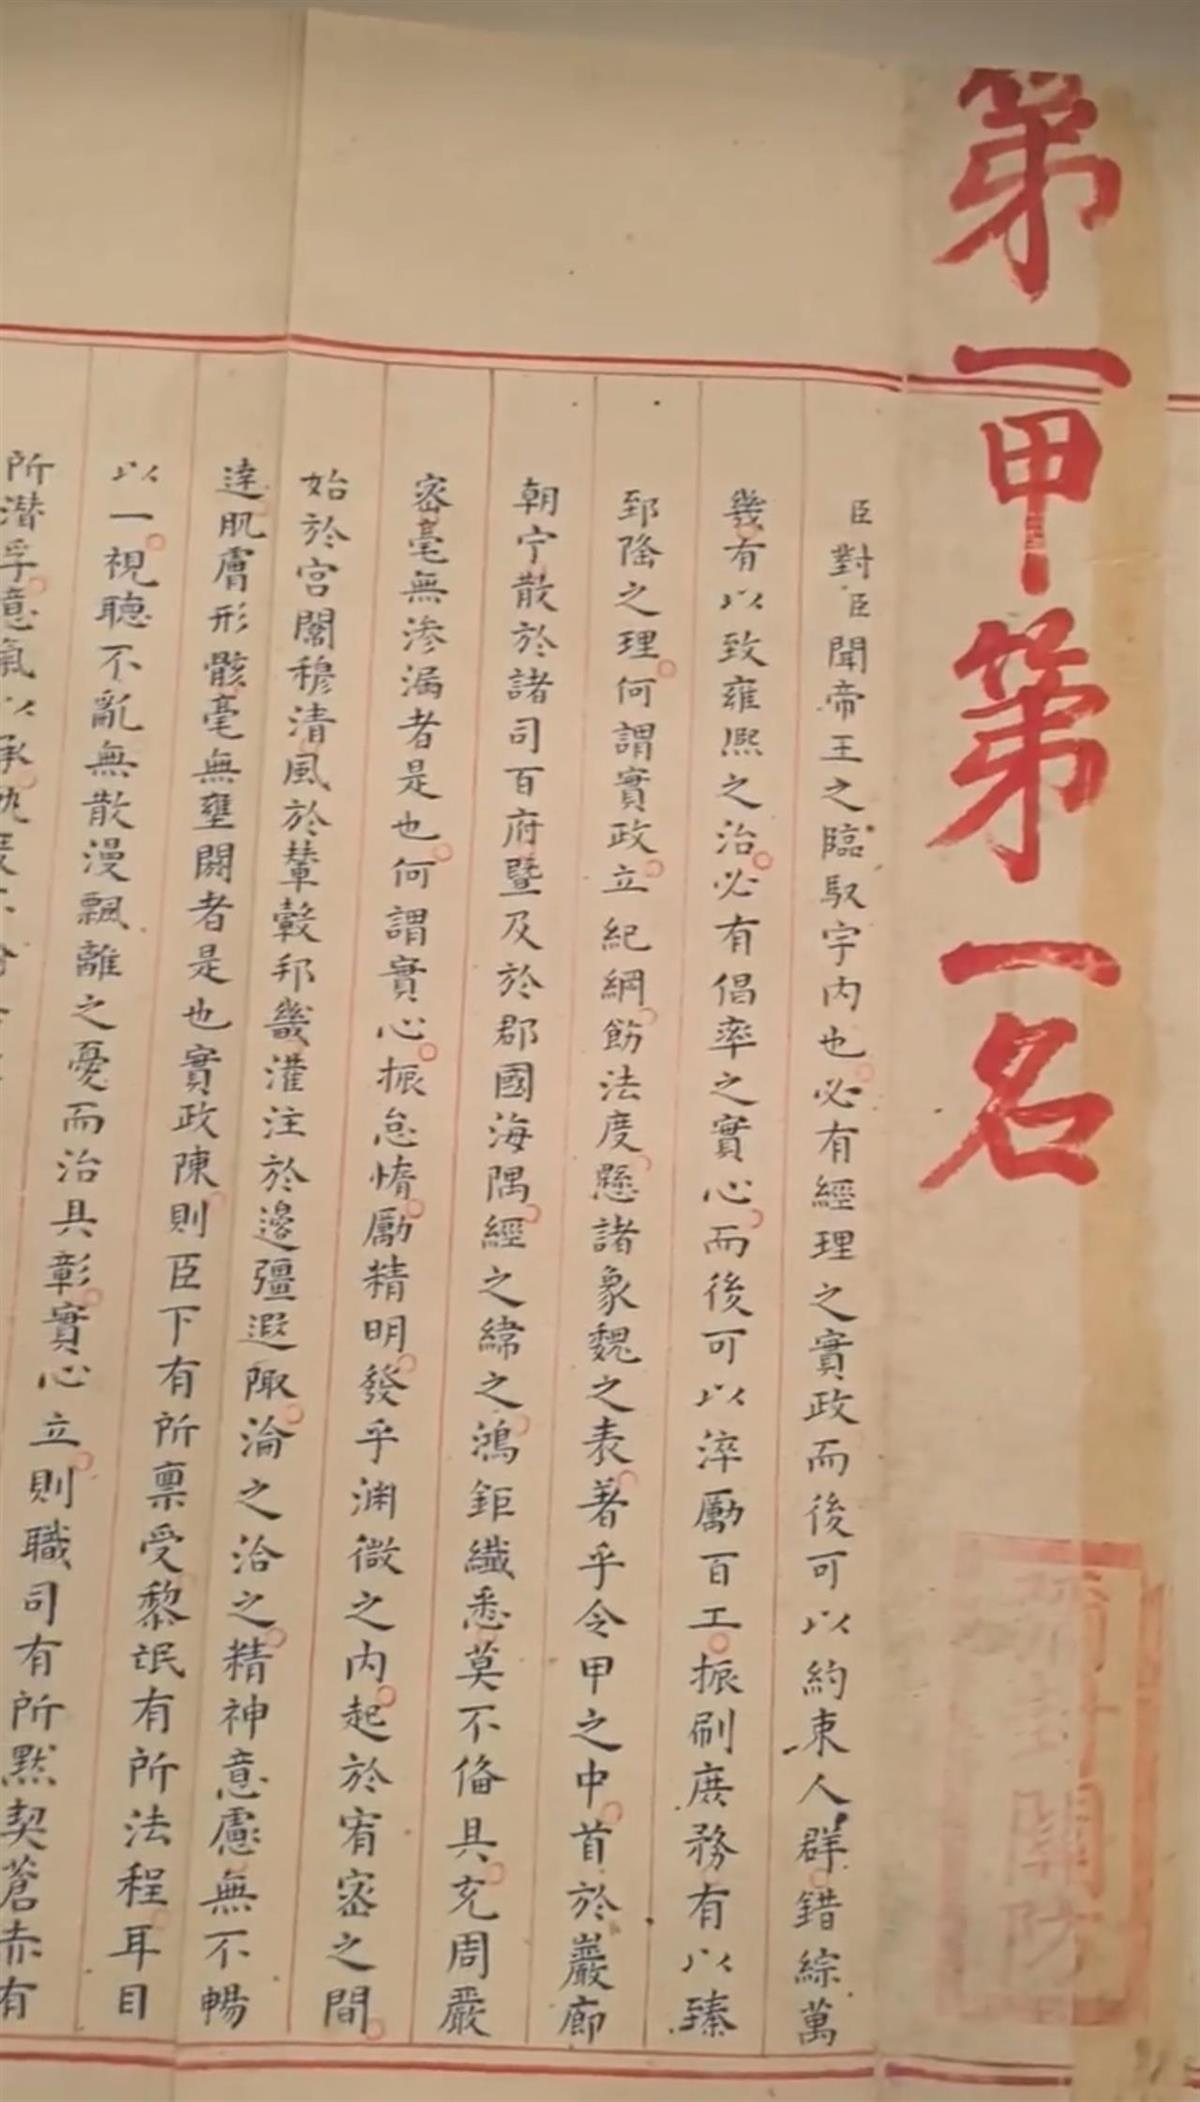 第一甲第一名
臣對臣聞帝王之臨馭宇內也必有經理之實政而後可以約束人群錯綜萬
幾有以致雍熙之治必有倡率之實心而後可以淬勵百工振刷庶務有以臻
郅隆之理何謂實政立紀綱飭法度懸諸象魏之表著乎令甲之中首於巖廊
朝宁散於諸司百府暨及於郡國海隅經之緯之鴻鉅纖悉莫不備具充周嚴
密毫無滲漏者是也何謂實心振怠惰勵精明發乎淵微之內起於宥密之間
始於宮闈穆清風於輦轂邦畿灌注於邊疆遐陬淪之洽之精神意慮無不暢
達肌膚形骸毫無壅閼者是也實政陳則臣下有所稟受黎氓有所法程耳目
以一視聽不亂無散漫飄離之憂而治具彰實心立則職司有所默契蒼赤有
所潛孚意氣以承
關防